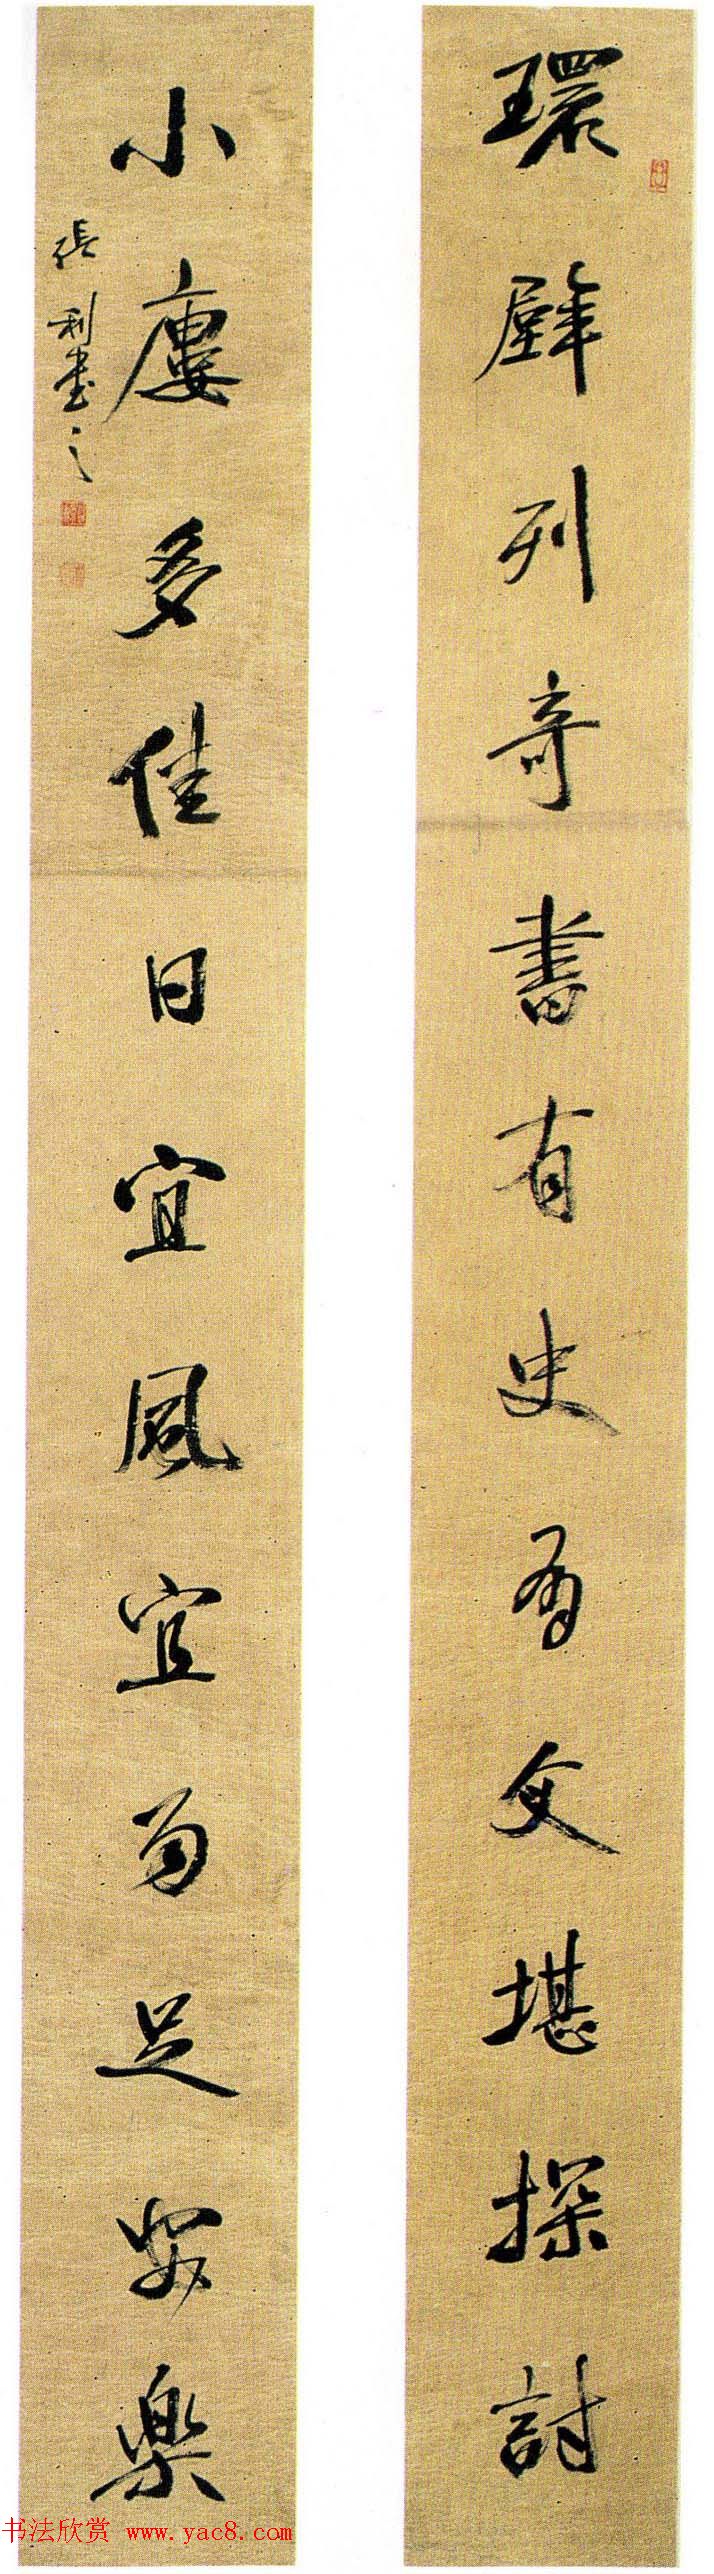 環壁列奇書有史有文堪探討
小廔多佳日宜風宜雨足安樂
張利書之
书法欣赏 www.yac8.com